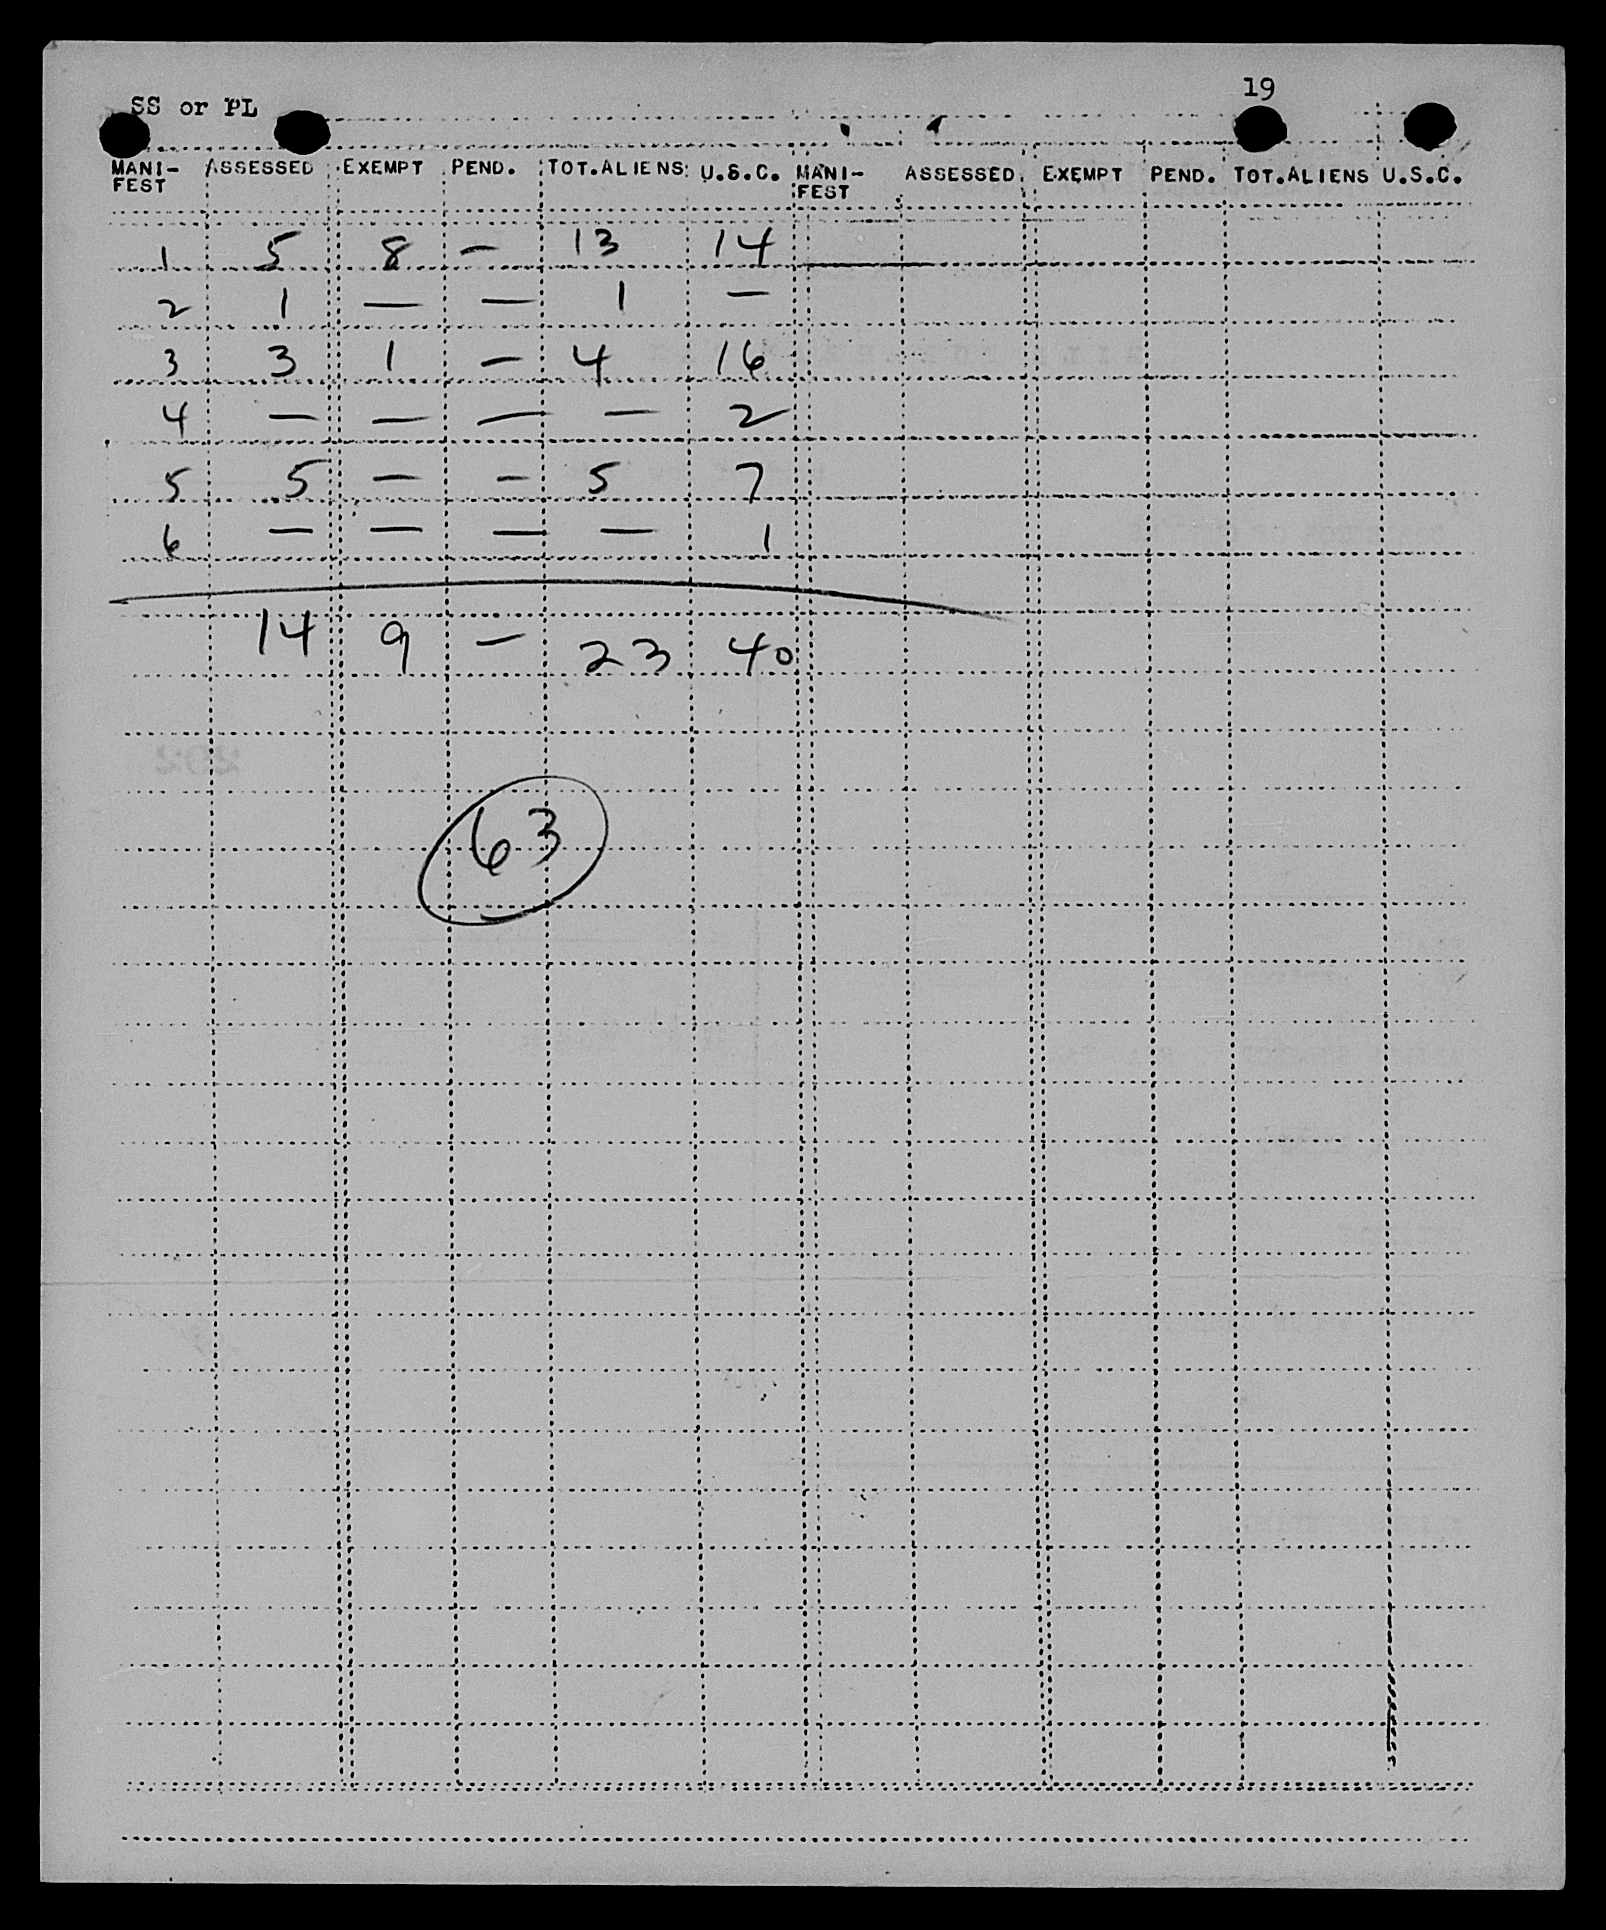 19
SS or PL
MANI- ASSESSED EXEMPT PEND. TOT.ALIENS U.S.C. MANI- ASSESSED EXEMPT PEND. TOT.ALIENS U.S.C.
FEST FEST
1 5 8 - 13 14
2 1 - - 1 -
3 3 1 - 4 16
4 - - - - 2
5 5 - - 5 7
6 - - - - 1
14 9 - 23 40
63